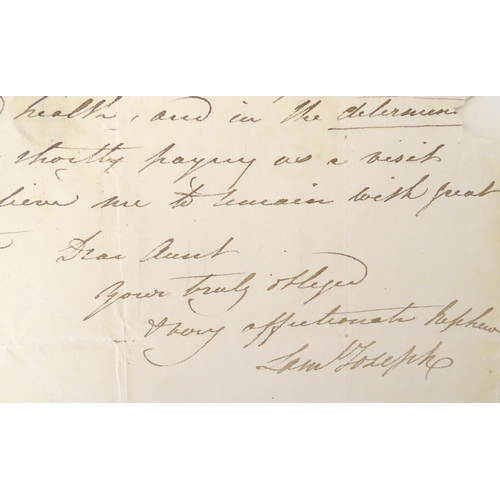 health, and in the determin
shortly paying us a visit
lieve me to remain with great
Dear Aunt
Your truly obliged
& very affectionate Nephew
Saml Joseph